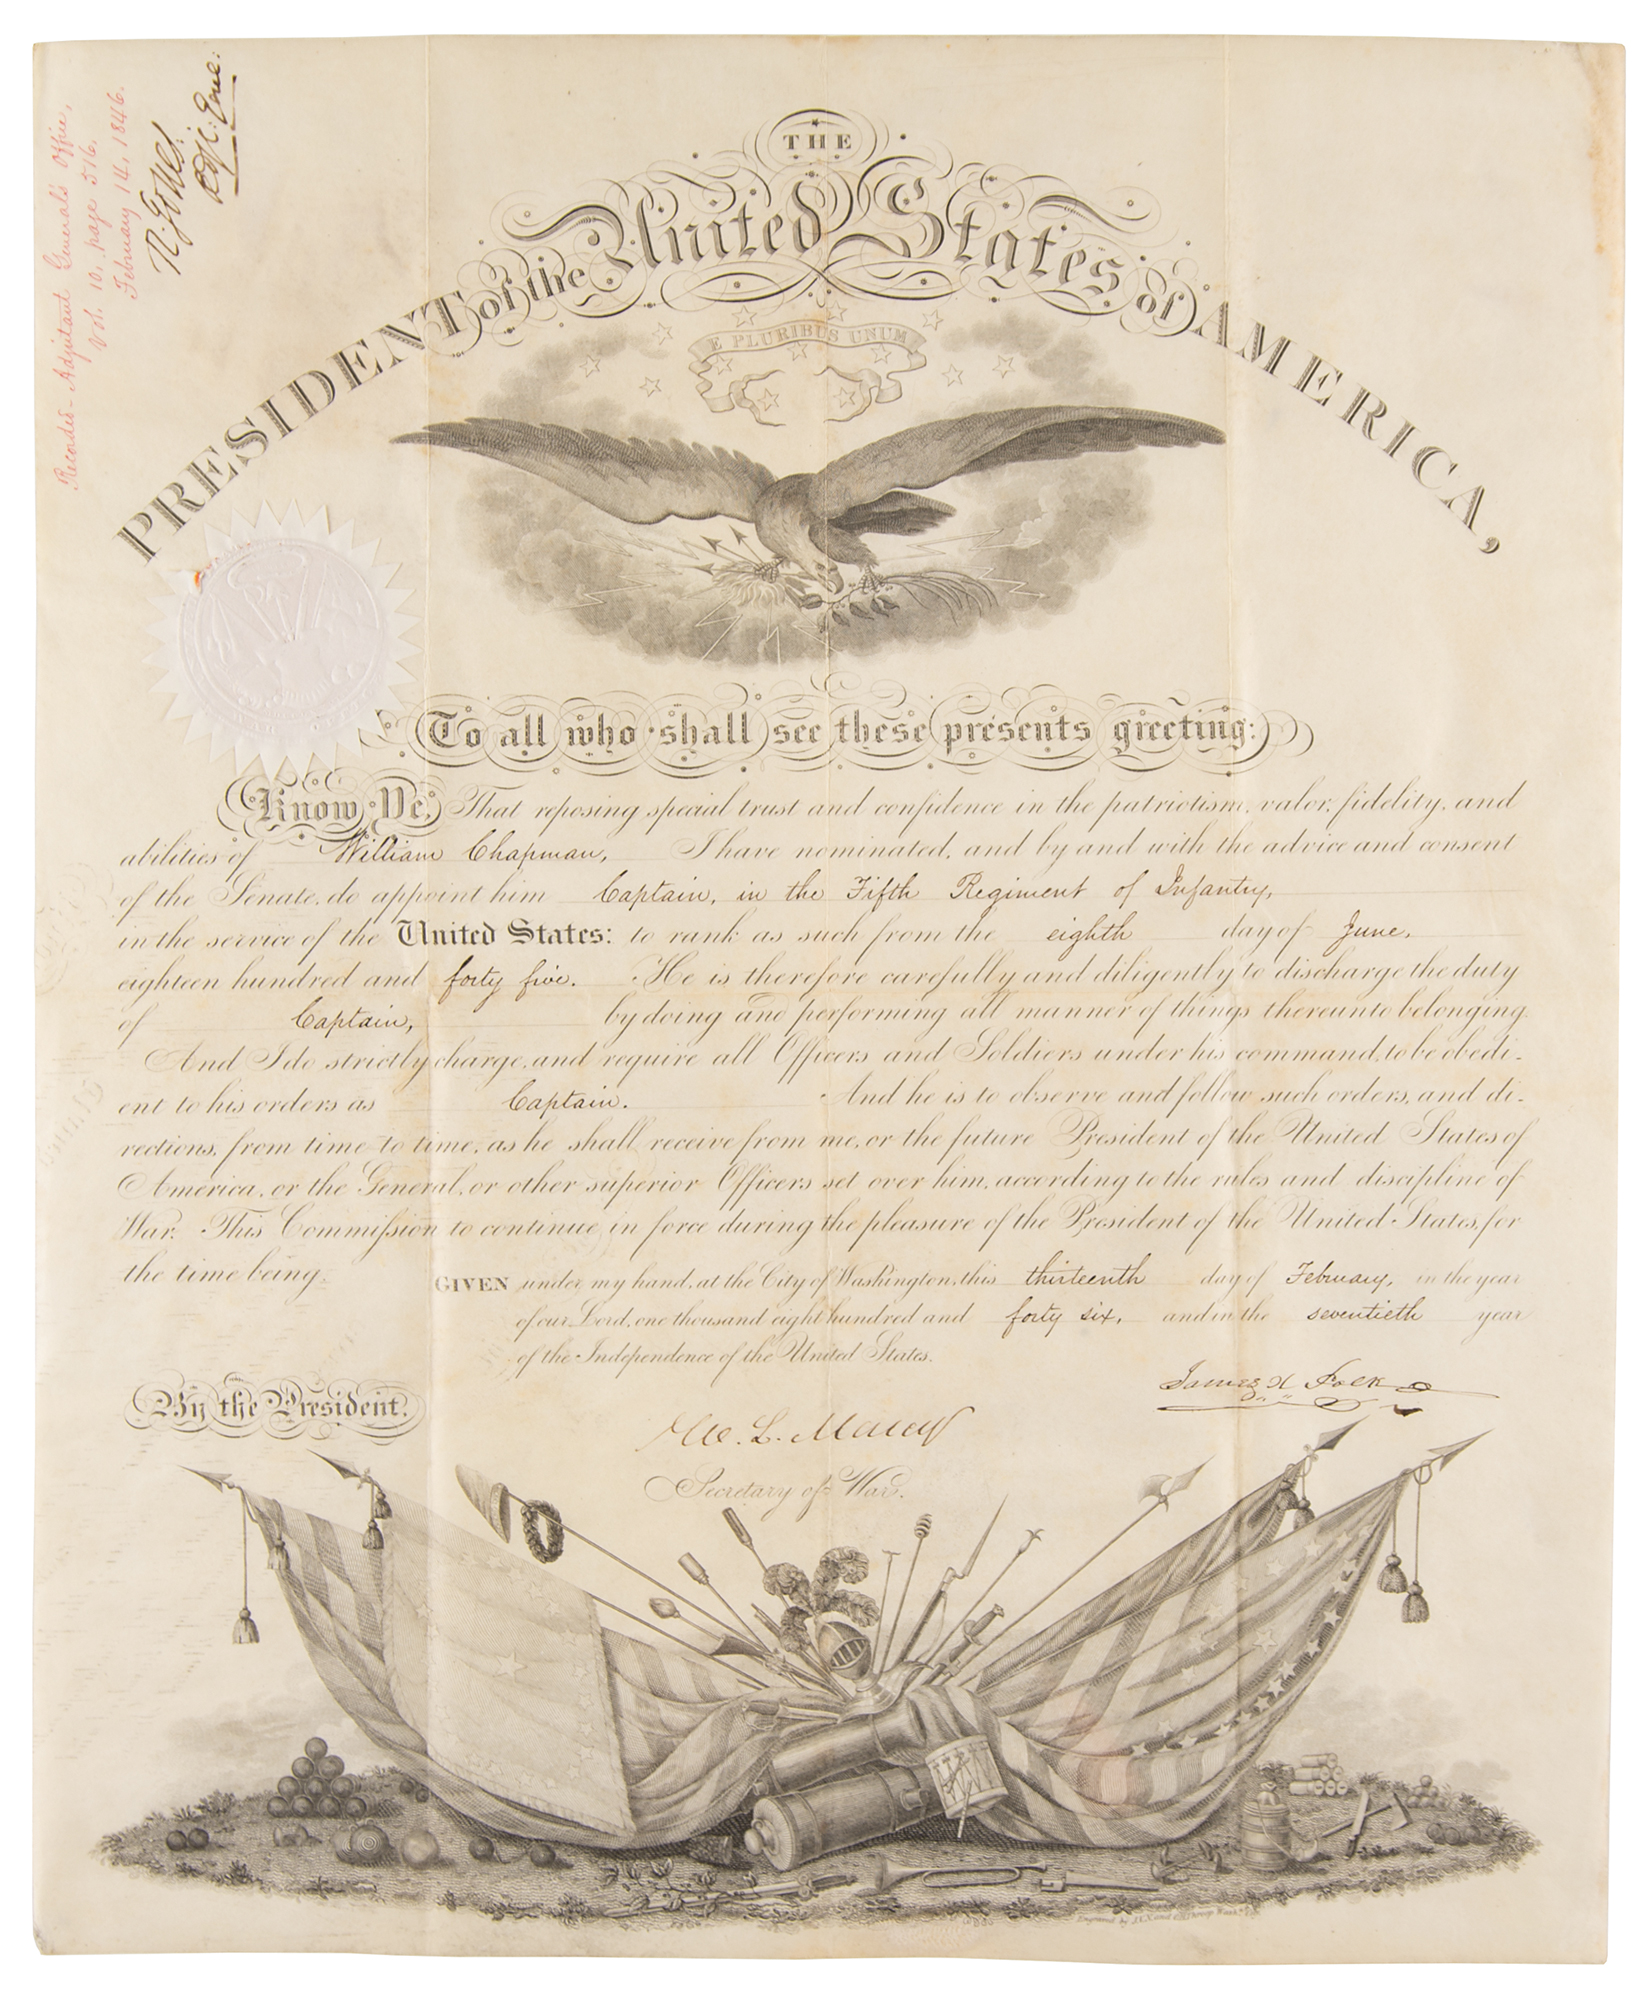 Recorded - Adjutant General's Office,
Vol. 10. page 516.
February 14, 1846.
R. Jones.
THE
PRESIDENT of the United States of AMERICA,
E PLURIBUS UNUM
To all who shall see these presents greeting:
Know Ye, That reposing special trust and confidence in the patriotism, valor, fidelity, and
abilities of William Chapman, I have nominated, and by and with the advice and consent
of the Senate, do appoint him Captain, in the Fifth Regiment of Infantry,
in the service of the United States: to rank as such from the eighth day of June,
eighteen hundred and forty five. He is therefore carefully and diligently to discharge the duty
of Captain, by doing and performing all manner of things thereunto belonging.
And I do strictly charge, and require all Officers and Soldiers under his command, to be obedi-
ent to his orders as Captain. And he is to observe and follow such orders, and di-
rections, from time to time, as he shall receive from me, or the future President of the United States of
America, or the General, or other superior Officers set over him, according to the rules and discipline of
War. This Commission to continue in force during the pleasure of the President of the United States, for
the time being.
GIVEN under my hand, at the City of Washington, this thirteenth day of February, in the year
of our Lord, one thousand eight hundred and forty six, and in the seventieth year
of the Independence of the United States.
James K Polk
By the President.
W. L. Marcy
Secretary of War.
Engraved by